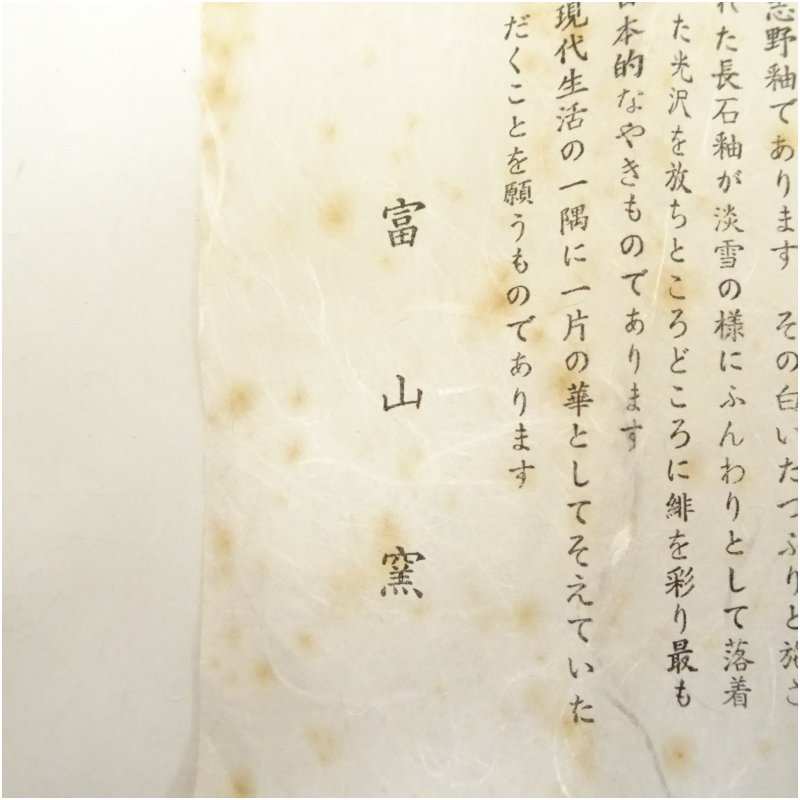 志野釉であります その白いたつぷりと施さ
れた長石釉が淡雪の様にふんわりとして落着
た光沢を放ちところどころに緋を彩り最も
日本的なやきものであります
現代生活の一隅に一片の華としてそえていた
だくことを願うものであります
富山窯